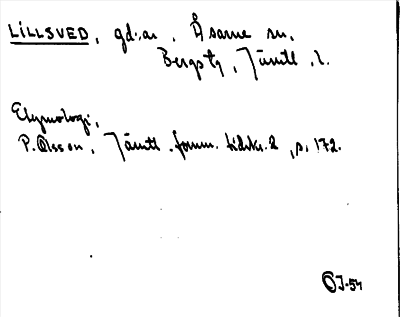 LILLSVED, gd:ar, Åsarne sn,
Bergs tg, Jämtl. l.
Etymologi,
P. Olsson, Jämtl. fornm. tidskr. 2, s. 172.
OJ-54